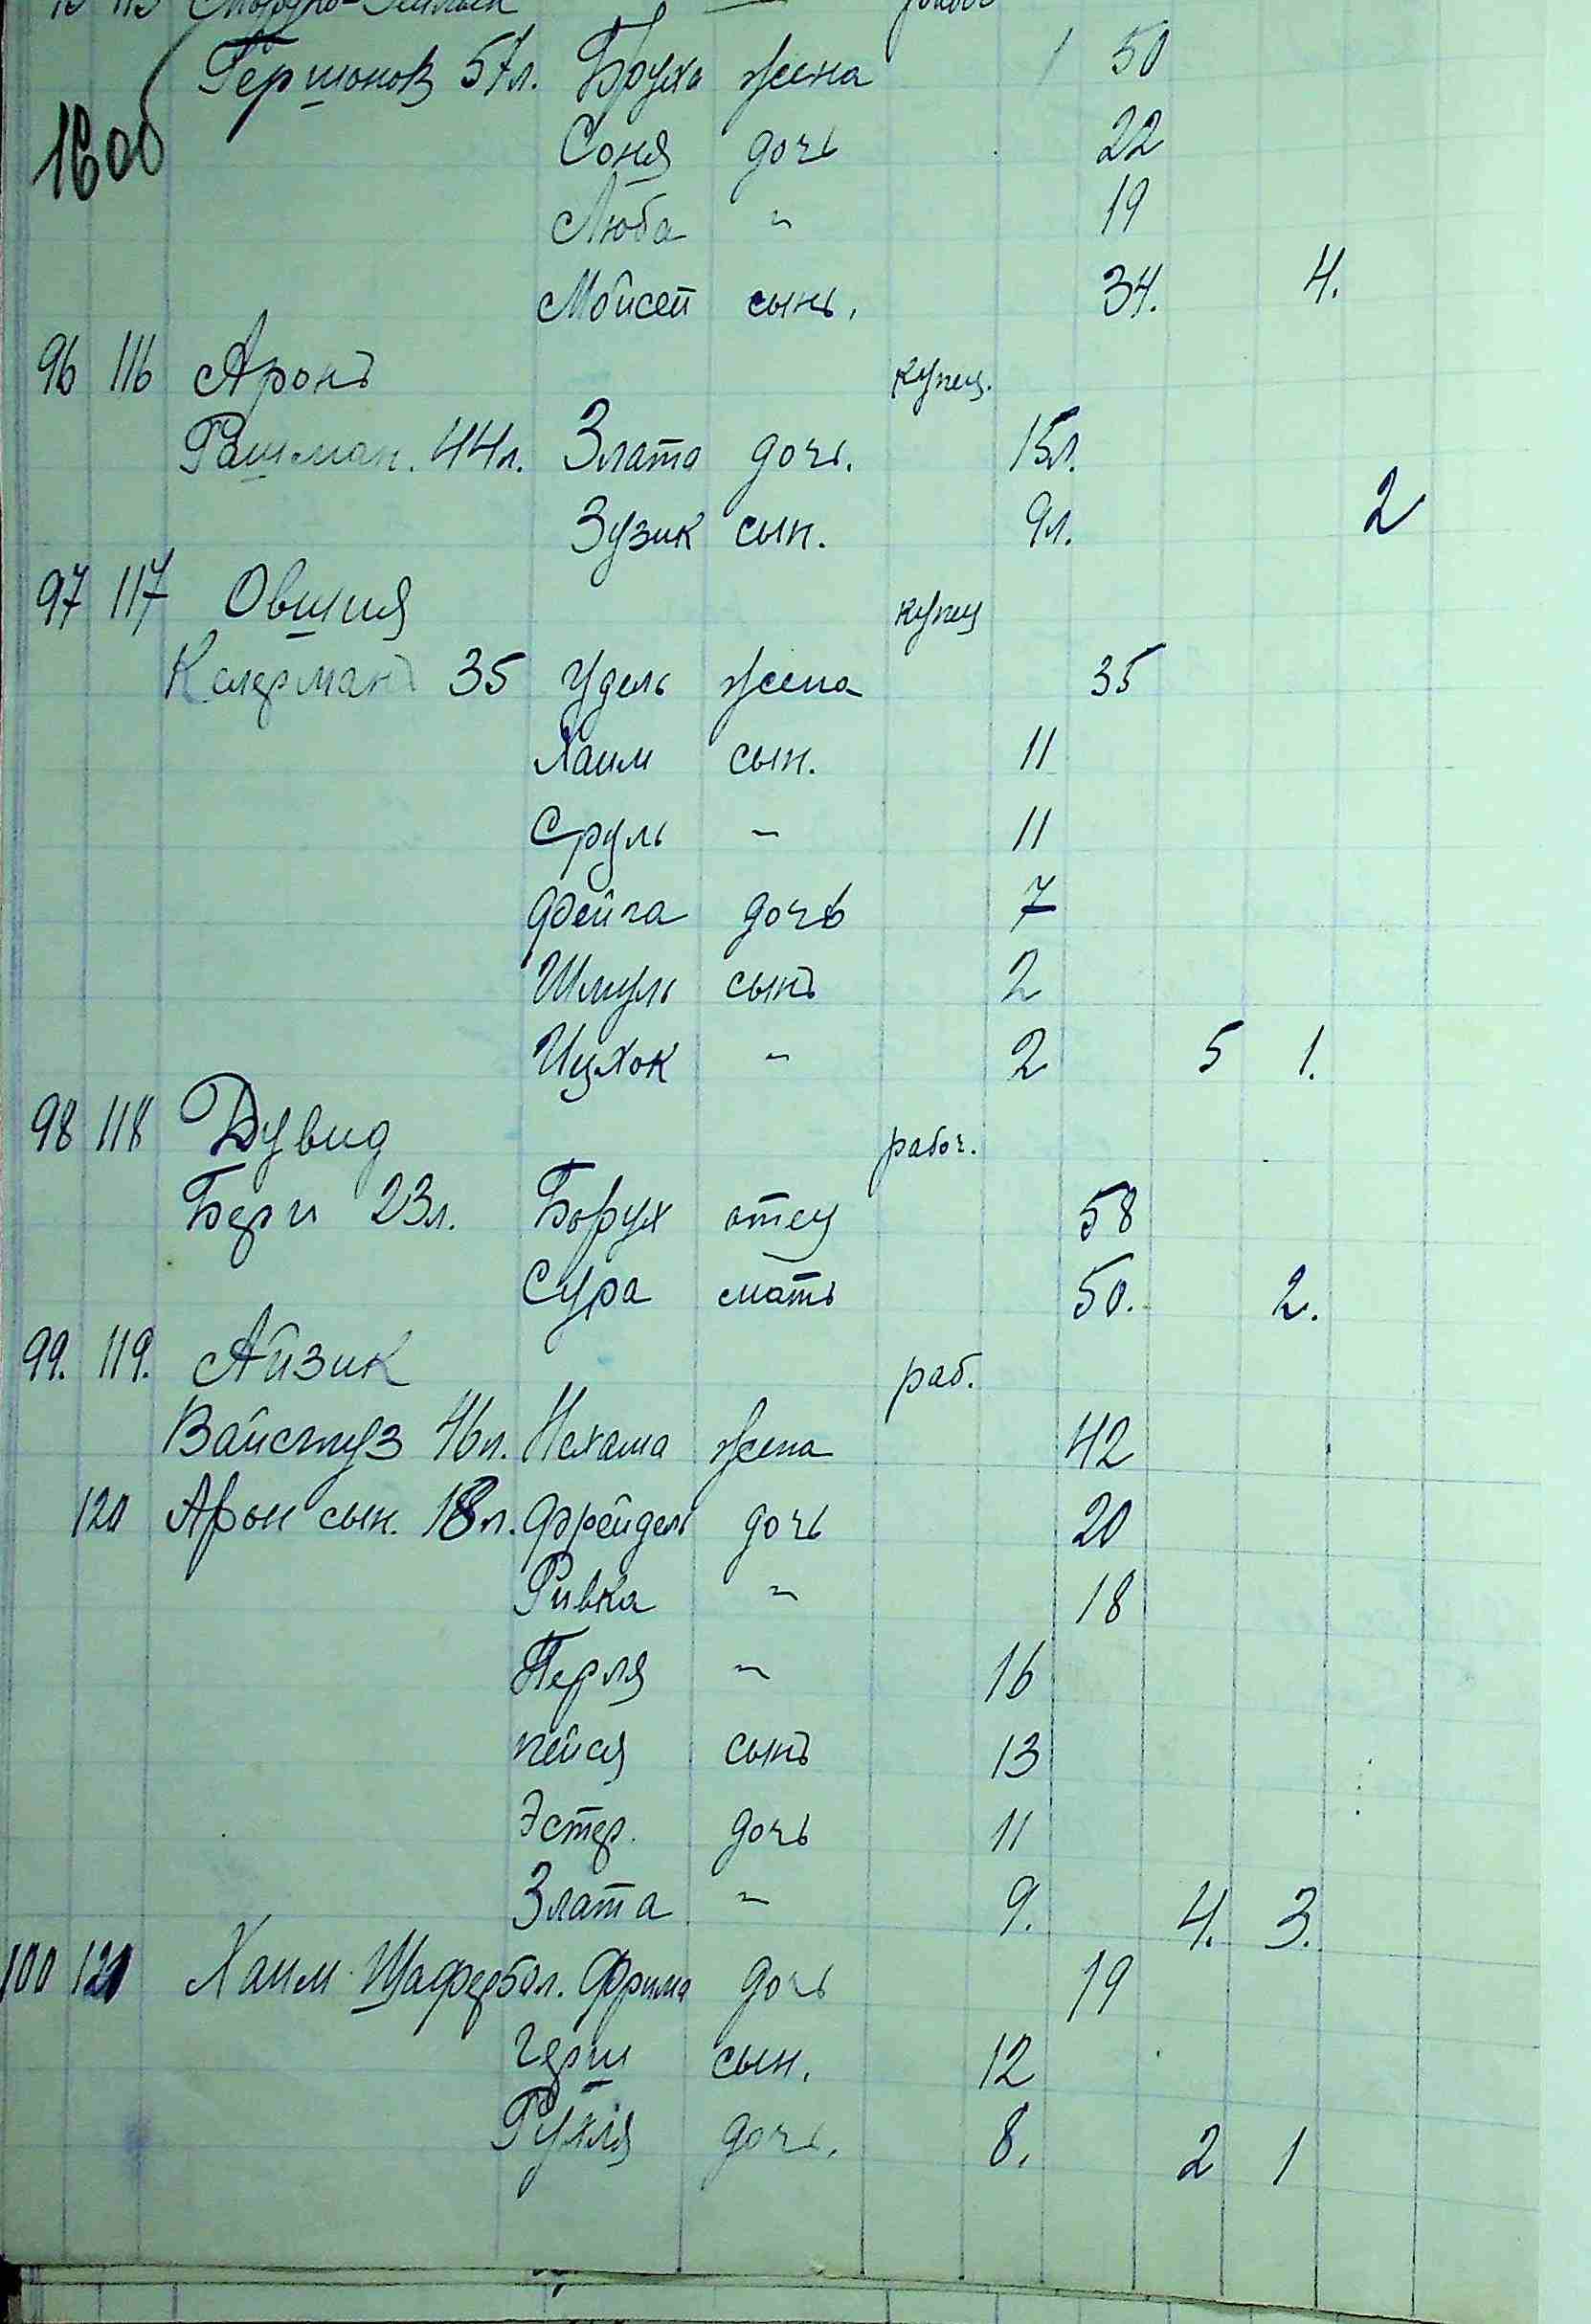 Гершонов 57л. Бруха жена 50
1600
Соня дочь 22
Люба " 19
Мойсей сынъ. 34. 4.
96 116 Аронъ купец.
44л. Злата дочь. 15л.
Зузик сын. 9л. 2
97 117 Овшия купец
Келерманъ 35 Удель жена 35
Хаим сын. 11
Сруль " 11
Фейга дочь 7
Шмуль сынъ 2
Ицхок " 2 5 1.
98 118 Дувид рабоч.
Бери 23л. Борух отец 58
Сура мать 50. 2.
99. 119. Айзик раб.
46л. Нехама жена 42
120 Арон сын. 18л. Фрейдель дочь 20
Ривка " 18
Перля " 16
пейся сынъ 13
Эстер. дочь 11
Злата " 9. 4. 3.
100 121 Хаим Фрима дочь 19
Герш сын. 12
Рухля дочь. 8. 2 1